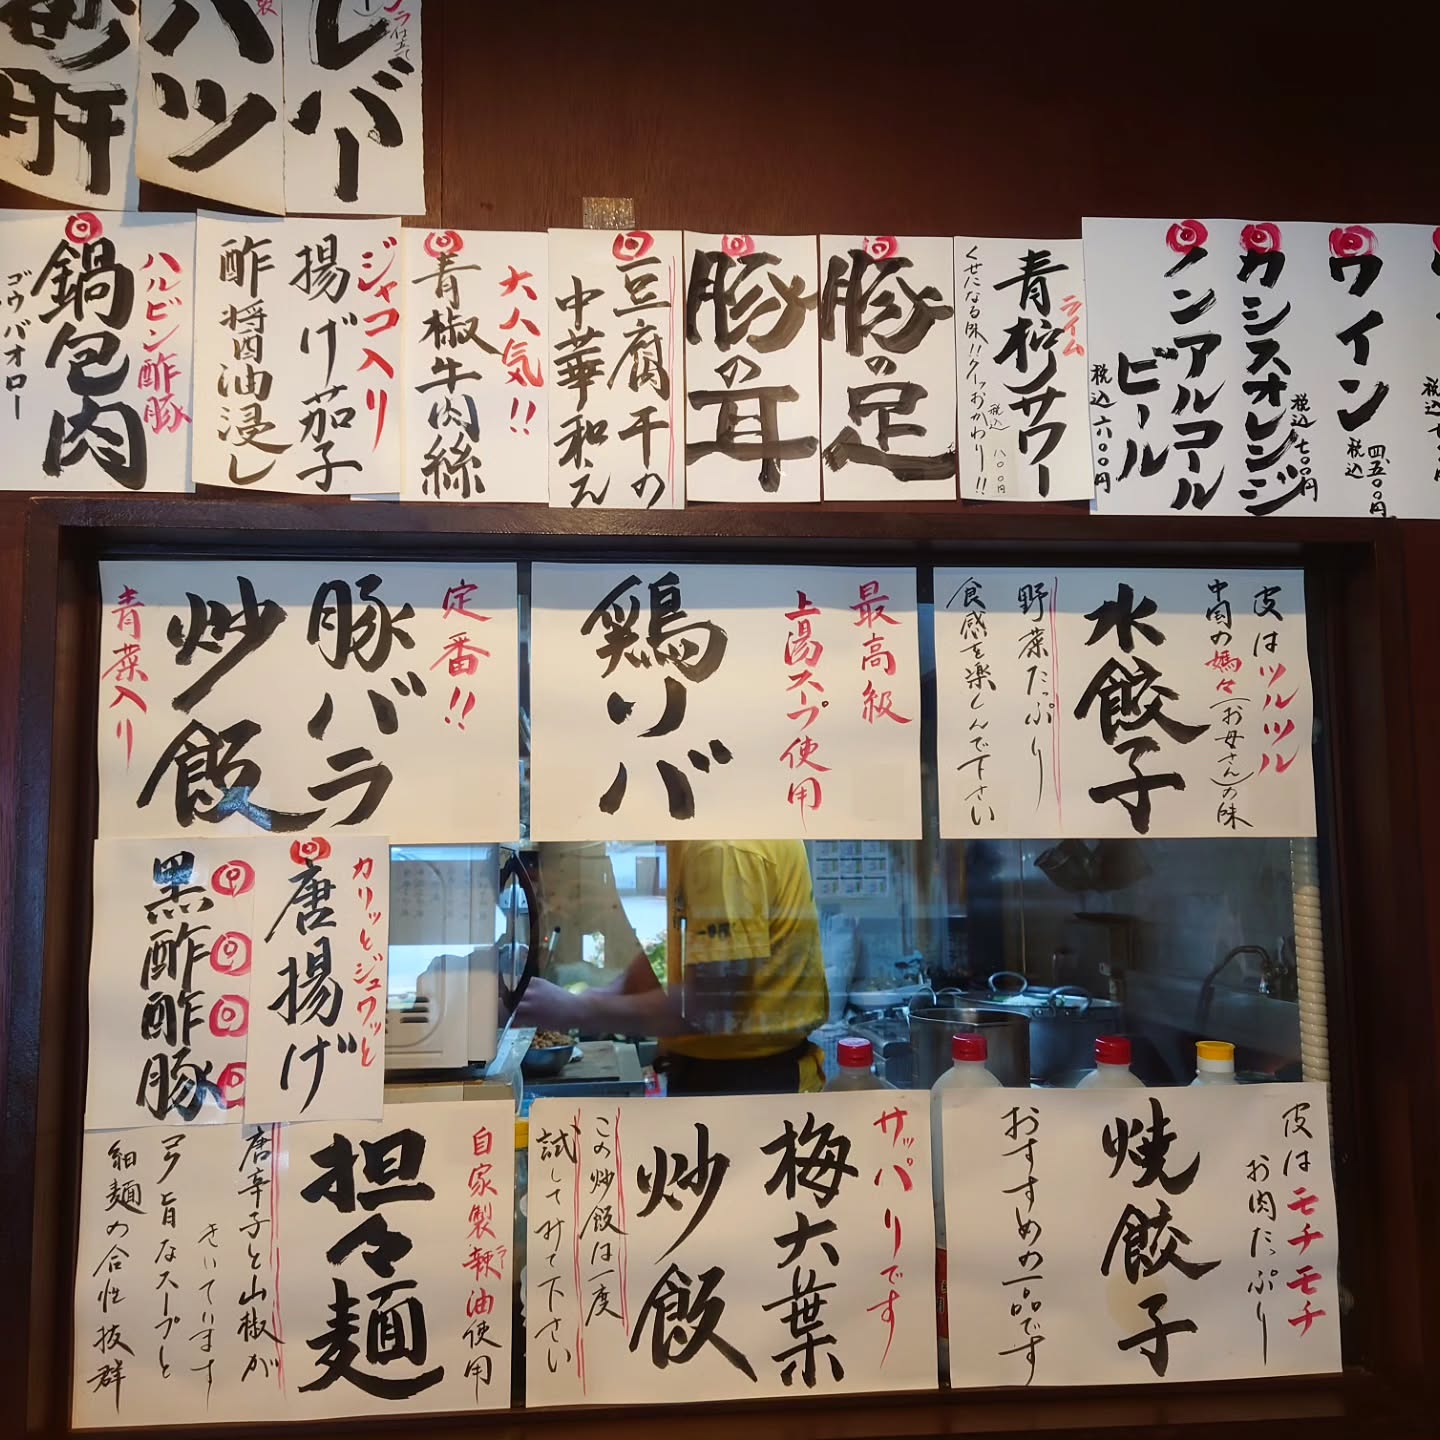 レバー
ハツ
砂肝
ワイン
税込
四、五〇〇円
カシスオレンジ
税込
七〇〇円
ノンアルコール
ビール
税込六〇〇円
ライム
青柠サワー
くせになる味!!クーッおかわり!!
税込
八〇〇円
豚の足
豚の耳
豆腐干の
中華和え
大人気!!
青椒牛肉絲
ジャコ入り
揚げ茄子
酢醤油浸し
ハルビン酢豚
鍋包肉
ゴウバオロー
皮はツルツル
中国の媽々(お母さん)の味
水餃子
野菜たっぷり
食感を楽しんで下さい
最高級
上湯スープ使用
鶏ソバ
定番!!
豚バラ
炒飯
青菜入り
カリッとジュワッと
唐揚げ
黒酢酢豚
皮はモチモチ
お肉たっぷり
焼餃子
おすすめの一品です
サッパリです
梅大葉
炒飯
この炒飯は一度
試してみて下さい
自家製辣油使用
担々麺
唐辛子と山椒が
きいています
旨なスープと
細麺の合性抜群